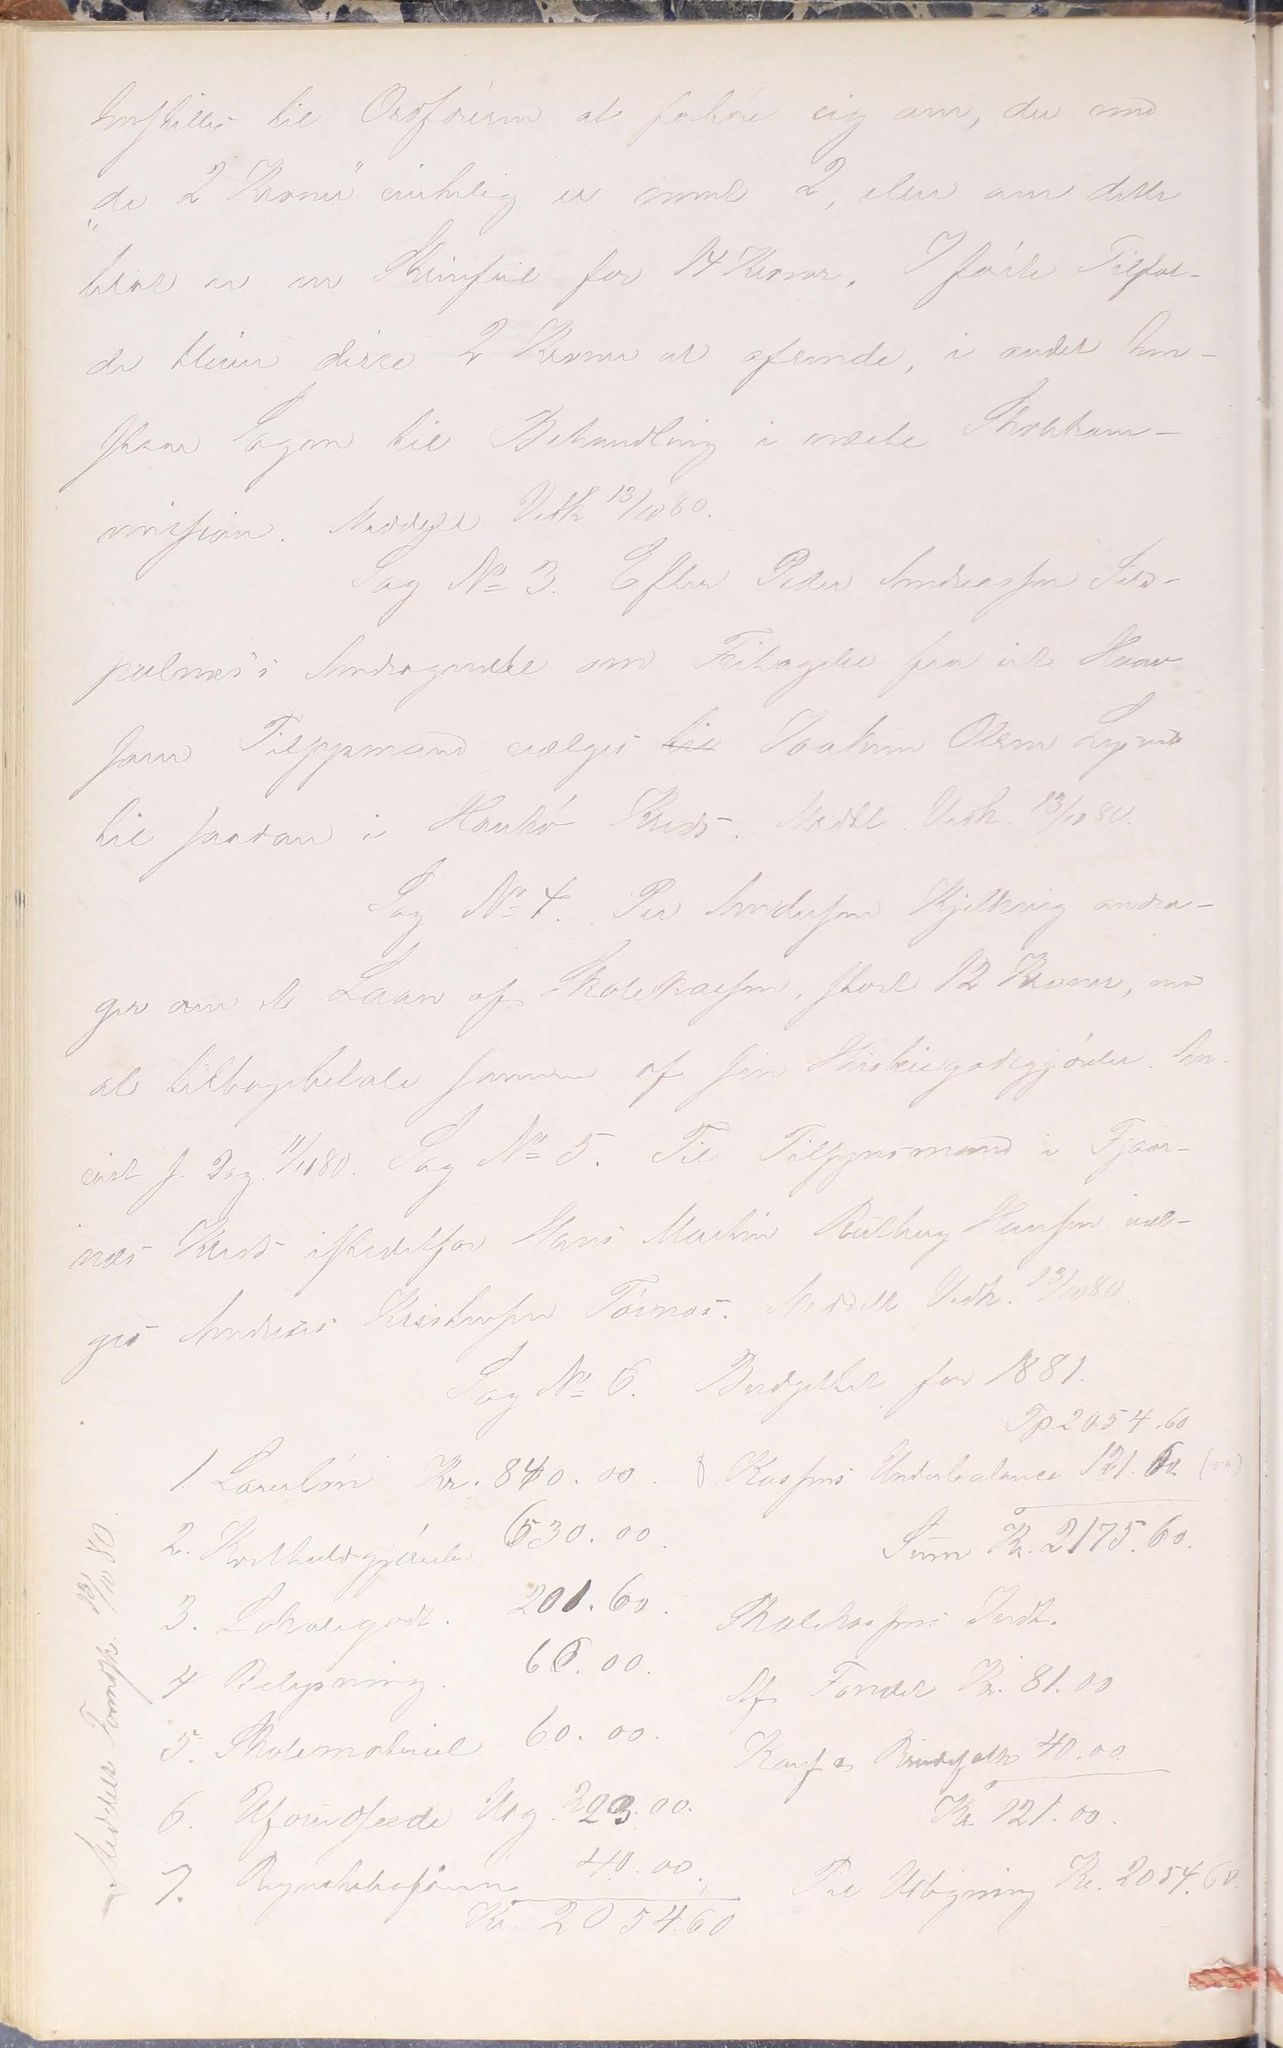 til Ordføreren at forhøre sig om, der med
"de 2 Kroner" virkelig er ment 2, eller om dette
blot er en Skrivfeil for 14 Kroner. I første Tilfæl-
de bliver disse 2 Kroner at afsende, i andet hen-
staar Sagen til Behandling i næste Skolekom-
mission. Meddelt Vedk 13/10 80.
Sag No 3. Efter Peder Andreassen
Andragende om Fritagelse fra sit Hverv
som Tilsynsmand vælges til Joakim Olsen
til saadan i Haukø Kreds. Meddelt Vedk. 13/10 80.
Sag No 4. Per Andersen Kjelkvig andra-
ger om et Laan af Skolekassen, stort 12 Kroner, mod
at tilbagebetale samme af sin
f. Dag. 11/10 80. Sag No 5. Til Tilsynsmand i Fjær-
næs Kreds istedetfor Hans Martin Hansen væl-
ges Andreas Kristensen Tørnæs. Meddelt Vedk. 13/10 80
Sag No 6. Budgettet for 1881.
Tp 2054.60
1. Lærerløn Kr. 840.00.
8. Kassens Underbalance 121.00
2. Kostholdsgjørelse 630.00
Sum Kr. 2175.60.
3. Lokalegodt. 201.60.
Skolekassens Indt.
4 Belysning. 60.00.
Af Fondet Kr. 81.00
5. Skolemateriel 60.00.
40.00
6. Uforudseede Udg. 203.00.
Kr. 121.00.
7. 40.00.
Til Udligning Kr. 2054.60.
Kr. 2054.60
Meddelt Formdsk. 13/10 80.